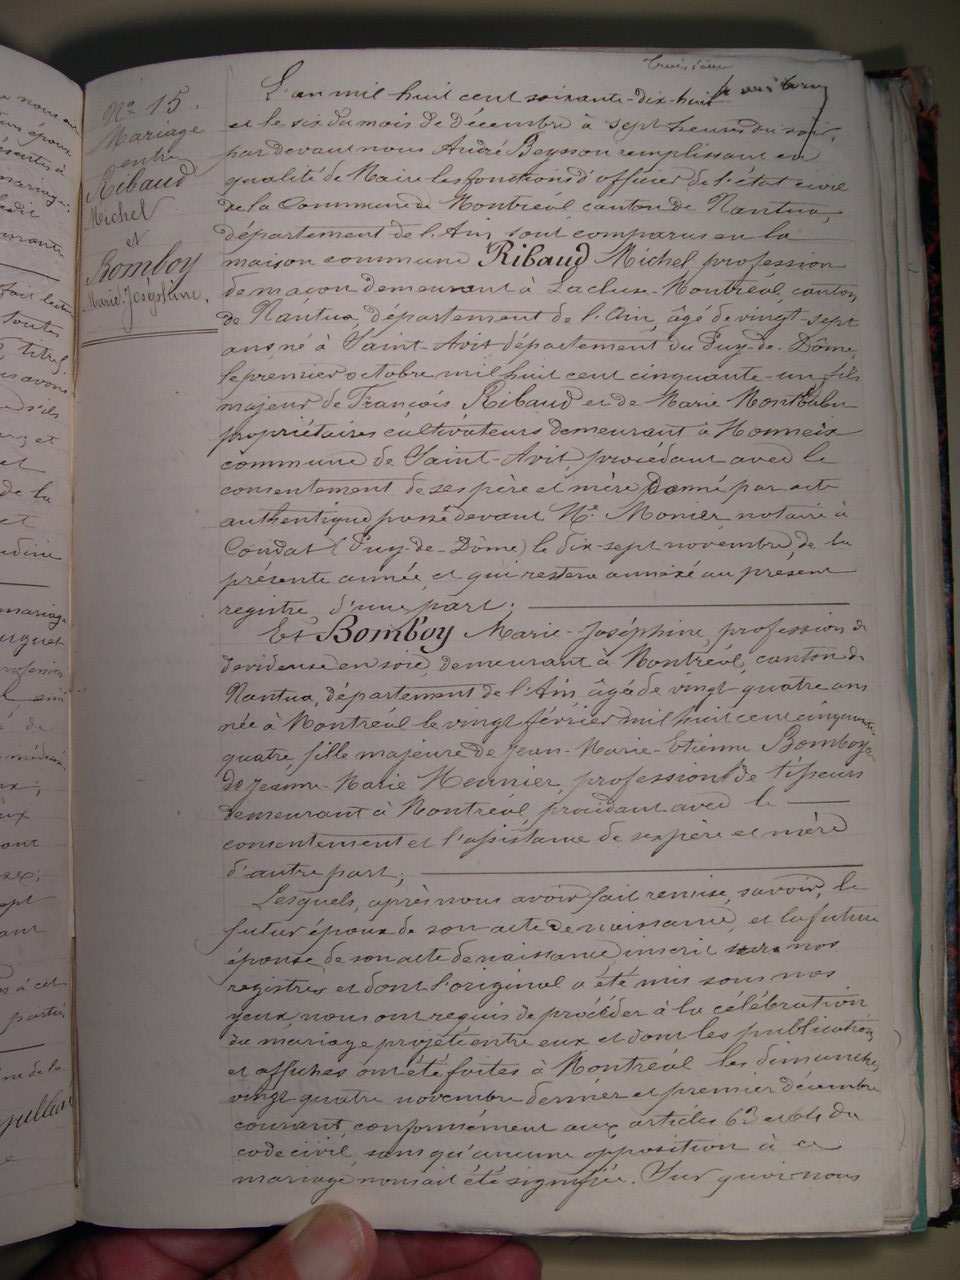 Troisième
N° 15.
Mariage
entre
Ribaud
Michel
et
Bomboy
Marie-Joséphine.
L'an mil huit cent soixante-dix-huit
et le six du mois de Décembre à sept heures du soir,
par devant nous André Beysson remplissant en
qualité de Maire les fonctions d'officier de l'état civil
de la Commune de Montréal canton de Nantua,
département de l'Ain, sont comparus en la
maison commune Ribaud Michel, profession
de maçon demeurant à Lacluse-Montréal, canton
de Nantua, département de l'Ain, âgé de vingt-sept
ans, né à Saint-Avit département du Puy-de-Dôme,
le premier octobre mil huit cent cinquante-un, fils
majeur de François Ribaud et de Marie
propriétaires cultivateurs demeurant à
commune de Saint-Avit, procédant avec le
consentement de ses père et mère Donné par acte
authentique passé devant Me Monier notaire à
Condat (Puy-de-Dôme) le dix-sept novembre, de la
présente année, et qui restera annexé au présent
registre, d'une part;
Et Bomboy Marie-Joséphine, profession de
dévideuse en soie, demeurant à Montréal, canton de
Nantua, département de l'Ain, âgée de vingt-quatre ans
née à Montréal le vingt février mil huit cent cinquante
quatre, fille majeure de Jean-Marie-Etienne Bomboy et
de Jeanne-Marie Meunier, profession de tisseurs
demeurant à Montréal, procédant avec le
consentement et l'assistance de ses père et mère
d'autre part;
Lesquels, après nous avoir fait remise, savoir, le
futur époux de son acte de naissance, et la future
épouse de son acte de naissance inscrit sur nos
registres et dont l'original a été mis sous nos
yeux, nous ont requis de procéder à la célébration
du mariage projeté entre eux et dont les publications
et affiches ont été faites à Montréal les dimanches
vingt-quatre novembre dernier et premier décembre
courant, conformément aux articles 63 et 64 du
code civil, sans qu'aucune opposition à ce
mariage nous ait été signifiée. Sur quoi nous